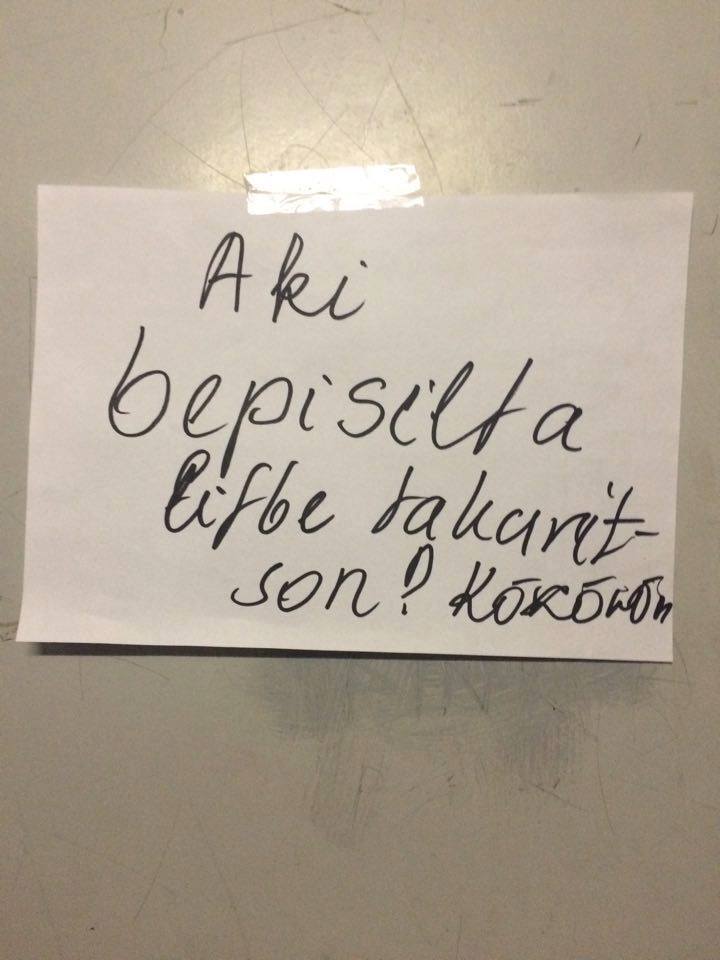 Aki
bepisilta
lifbe takarít-
son? KŌSŌNŌn